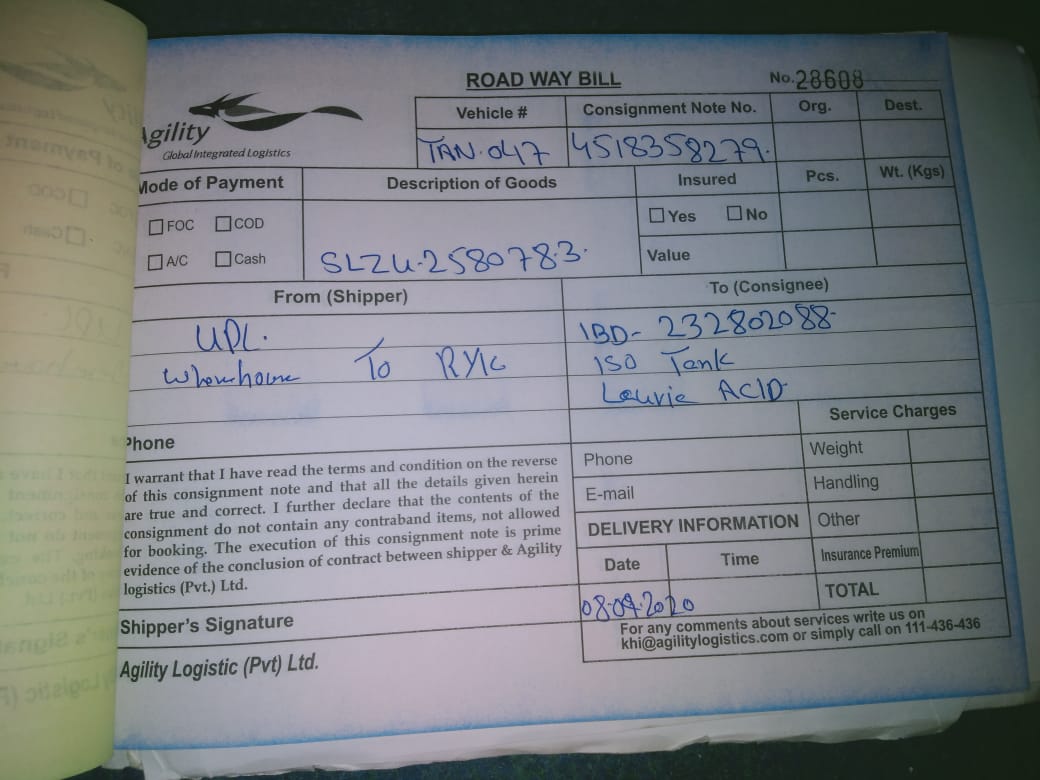 ROAD WAY BILL
No.28608
Agility
Global Integrated Logistics
Vehicle # Consignment Note No. Org. Dest.
TAN.047 4518358279.
Mode of Payment Description of Goods Insured Pcs. Wt. (Kgs)
FOC COD Yes No
A/C Cash SLZU.2580783. Value
From (Shipper) To (Consignee)
UPL. IBD- 232802088
To RYK ISO Tank
Lauric ACID
Phone Service Charges
I warrant that I have read the terms and condition on the reverse
of this consignment note and that all the details given herein
are true and correct. I further declare that the contents of the
consignment do not contain any contraband items, not allowed
for booking. The execution of this consignment note is prime
evidence of the conclusion of contract between shipper & Agility
logistics (Pvt.) Ltd.
Phone Weight
E-mail Handling
DELIVERY INFORMATION Other
Date Time Insurance Premium
08.09.2020 TOTAL
Shipper's Signature
For any comments about services write us on
khi@agilitylogistics.com or simply call on 111-436-436
Agility Logistic (Pvt) Ltd.